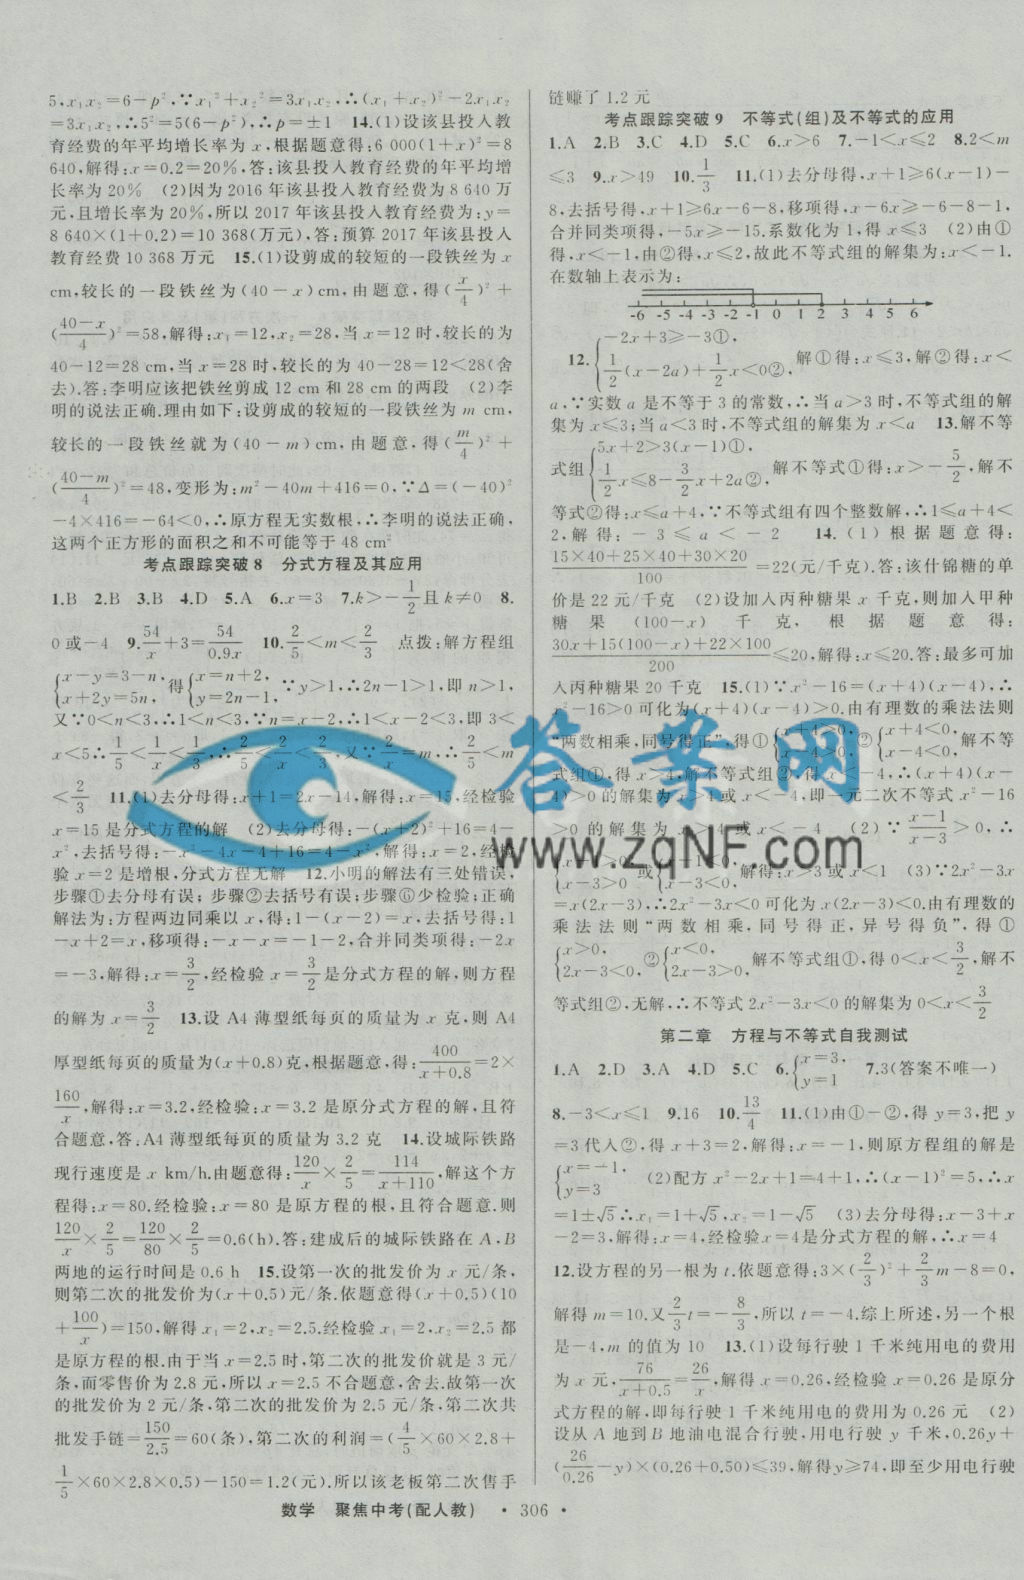 5,x₁x₂=6-p²,∵x₁²+x₂²=3x₁x₂,∴(x₁+x₂)²-2x₁x₂
=3x₁x₂,∴5²=5(6-p²),∴p=±1 14.(1)设该县投入教
育经费的年平均增长率为x,根据题意得:6 000(1+x)²=8
640,解得:x=0.2=20%,答:该县投入教育经费的年平均增
长率为20% (2)因为2016年该县投入教育经费为8 640万
元,且增长率为20%,所以2017年该县投入教育经费为:y=
8 640×(1+0.2)=10 368(万元),答:预算2017年该县投入
教育经费10 368万元 15.(1)设剪成的较短的一段铁丝为x
cm,较长的一段铁丝为(40-x)cm,由题意,得(x/4)²+
((40-x)/4)²=58,解得:x₁=12,x₂=28,当x=12时,较长的为
40-12=28 cm,当x=28时,较长的为40-28=12<28(舍
去).答:李明应该把铁丝剪成12 cm和28 cm的两段 (2)李
明的说法正确.理由如下:设剪成的较短的一段铁丝为m cm,
较长的一段铁丝就为(40-m)cm,由题意,得(m/4)²+
((40-m)/4)²=48,变形为:m²-40m+416=0,∵Δ=(-40)²
-4×416=-64<0,∴原方程无实数根,∴李明的说法正确,
这两个正方形的面积之和不可能等于48 cm²
考点跟踪突破8 分式方程及其应用
1.B 2.B 3.B 4.D 5.A 6.x=3 7.k>-1/2且k≠0 8.
0或-4 9.54/x+3=54/0.9x 10.2/5<m<2/3 点拨:解方程组
{x-y=3-n, x+2y=5n, 得{x=n+2, y=2n-1, ∵y>1,∴2n-1>1,即n>1,
又∵0<n<3,∴1<n<3,∵n=x-2,∴1<x-2<3,即3<
x<5∴1/5<1/x<1/3,∴2/5<2/x<2/3,又∵2/x=m,∴2/5<m
<2/3 11.(1)去分母得:x+1=2x-14,解得:x=15,经检验
x=15是分式方程的解 (2)去分母得:-(x+2)²+16=4-
x²,去括号得:-x²-4x-4+16=4-x²,解得:x=2,经检
验x=2是增根,分式方程无解 12.小明的解法有三处错误,
步骤①去分母有误;步骤②去括号有误;步骤⑥少检验;正确
解法为:方程两边同乘以x,得:1-(x-2)=x,去括号得:1
-x+2=x,移项得:-x-x=-1-2,合并同类项得:-2x
=-3,解得:x=3/2,经检验x=3/2是分式方程的解,则方程
的解为x=3/2 13.设A4薄型纸每页的质量为x克,则A4
厚型纸每页的质量为(x+0.8)克,根据题意,得:400/(x+0.8)=2×
160/x,解得:x=3.2,经检验:x=3.2是原分式方程的解,且符
合题意,答:A4薄型纸每页的质量为3.2克 14.设城际铁路
现行速度是x km/h.由题意得:120/x×2/5=114/(x+110),解这个方
程得:x=80.经检验:x=80是原方程的根,且符合题意.则
120/x×2/5=120/80×2/5=0.6(h).答:建成后的城际铁路在A,B
两地的运行时间是0.6 h 15.设第一次的批发价为x元/条,
则第二次的批发价为(x+0.5)元/条.依题意得(x+0.5)(10
+100/x)=150,解得x₁=2,x₂=2.5.经检验x₁=2,x₂=2.5都
是原方程的根.由于当x=2.5时,第二次的批发价就是3元/
条,而零售价为2.8元,所以x=2.5不合题意,舍去.故第一次
的批发价为2元/条,第二次的批发价为2.5元/条,第二次共
批发手链=150/2.5=60(条),第二次的利润=(4/5×60×2.8+
1/5×60×2.8×0.5)-150=1.2(元).所以该老板第二次售手
链赚了1.2元
考点跟踪突破9 不等式(组)及不等式的应用
1.A 2.B 3.C 4.D 5.C 6.x>6 7.-1<x≤2 8.2<m
≤3 9.x>49 10.1/3 11.(1)去分母得,x+1≥6(x-1)-
8,去括号得,x+1≥6x-6-8,移项得,x-6x≥-6-8-1,
合并同类项得,-5x≥-15.系数化为1,得x≤3 (2)由①
得,x<-1,由②得,x≤2,故此不等式组的解集为:x<-1.
在数轴上表示为:
-6 -5 -4 -3 -2 -1 0 1 2 3 4 5 6
12.{-2x+3≥-3①, 1/2(x-2a)+1/2x<0②, 解①得:x≤3,解②得:x<
a,∵实数a是不等于3的常数,∴当a>3时,不等式组的解
集为x≤3;当a<3时,不等式组的解集为x<a 13.解不等
式组{5x+2>3(x-1)①, 1/2x≤8-3/2x+2a②, 解不等式①得:x>-5/2,解不
等式②得:x≤a+4,∵不等式组有四个整数解,∴1≤a+4<
2,解得:-3≤a<-2 14.(1)根据题意得:
(15×40+25×40+30×20)/100=22(元/千克).答:该什锦糖的单
价是22元/千克 (2)设加入丙种糖果x千克,则加入甲种
糖果(100-x)千克,根据题意得:
(30x+15(100-x)+22×100)/200≤20,解得x≤20.答:最多可加
入丙种糖果20千克 15.(1)∵x²-16=(x+4)(x-4),∴
x²-16>0可化为(x+4)(x-4)>0.由有理数的乘法法则
“两数相乘,同号得正”,得①{x+4>0, x-4>0, ②{x+4<0, x-4<0, 解不等
式组①,得x>4,解不等式组②,得x<-4,∴(x+4)(x-
4)>0的解集为x>4或x<-4,即一元二次不等式x²-16
>0的解集为x>4或x<-4 (2)∵(x-1)/(x-3)>0,∴
{x-1>0, x-3>0或{x-1<0, x-3<0, 解得:x>3或x<1 (3)∵2x²-3x
=x(2x-3),∴2x²-3x<0可化为x(2x-3)<0.由有理数的
乘法法则“两数相乘,同号得正,异号得负”,得①
{x>0, 2x-3<0, ②{x<0, 2x-3>0, 解不等式组①,得0<x<3/2,解不
等式组②,无解,∴不等式2x²-3x<0的解集为0<x<3/2
第二章 方程与不等式自我测试
1.A 2.D 3.A 4.D 5.C 6.{x=3, y=1 7.3(答案不唯一)
8.-3<x≤1 9.16 10.13/4 11.(1)由①-②,得y=3,把y
=3代入②,得x+3=2,解得:x=-1,则原方程组的解是
{x=-1, y=3 (2)配方x²-2x+1=4+1,∴(x-1)²=5,∴x
=1±√5∴x₁=1+√5,x₂=1-√5 (3)去分母得:x-3+x
-2=3,解得:x=4,经检验x=4是分式方程的解,∴x=4
12.设方程的另一根为t.依题意得:3×(2/3)²+2/3m-8=0,
解得m=10.又2/3t=-8/3,所以t=-4.综上所述,另一个根
是-4,m的值为10 13.(1)设每行驶1千米纯用电的费用
为x元,76/(x+0.5)=26/x,解得x=0.26,经检验x=0.26是原分
式方程的解,即每行驶1千米纯用电的费用为0.26元 (2)
设从A地到B地油电混合行驶,用电行驶y千米,0.26y+
(26/0.26-y)×(0.26+0.50)≤39,解得y≥74,即至少用电行驶
数学 聚焦中考(配人教) ·306·
答案网
www.zqNF.com